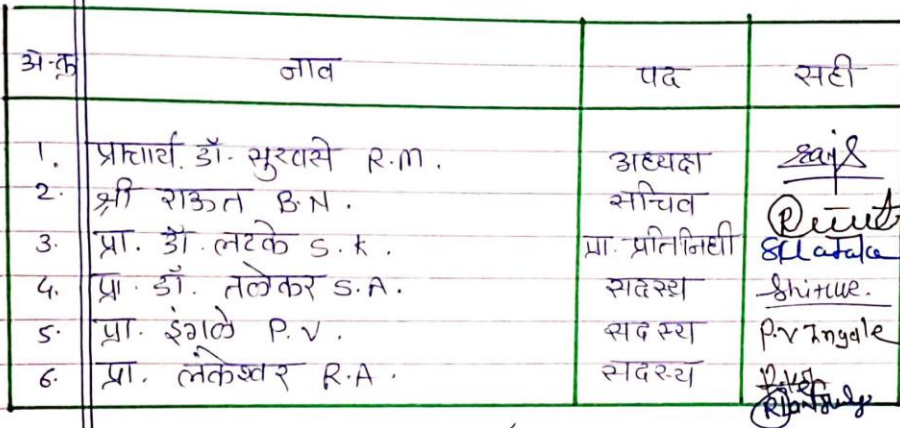 अ-क्र नाव पद सही
1. प्राचार्य. डॉ. सुरवसे R.M. अध्यक्ष
2. श्री राऊत B.N. सचिव
3. प्रा. डॉ. लटके S.K. प्रा. प्रतिनिधी
4. प्रा. डॉ. तलेकर S.A. सदस्य
5. प्रा. इंगळे P.V. सदस्य P.V Ingale
6. प्रा. लंकेश्वर R.A. सदस्य